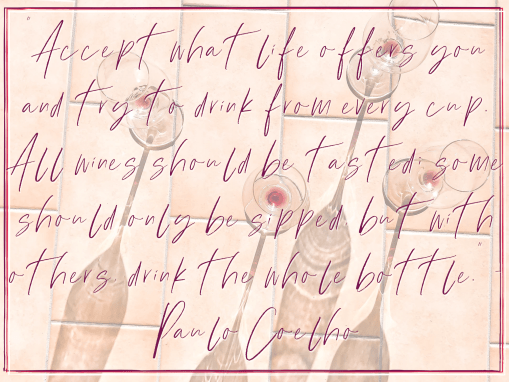 "Accept what life offers you
and try to drink from every cup.
All wines should be tasted; some
should only be sipped, but with
others, drink the whole bottle." -
Paulo Coelho